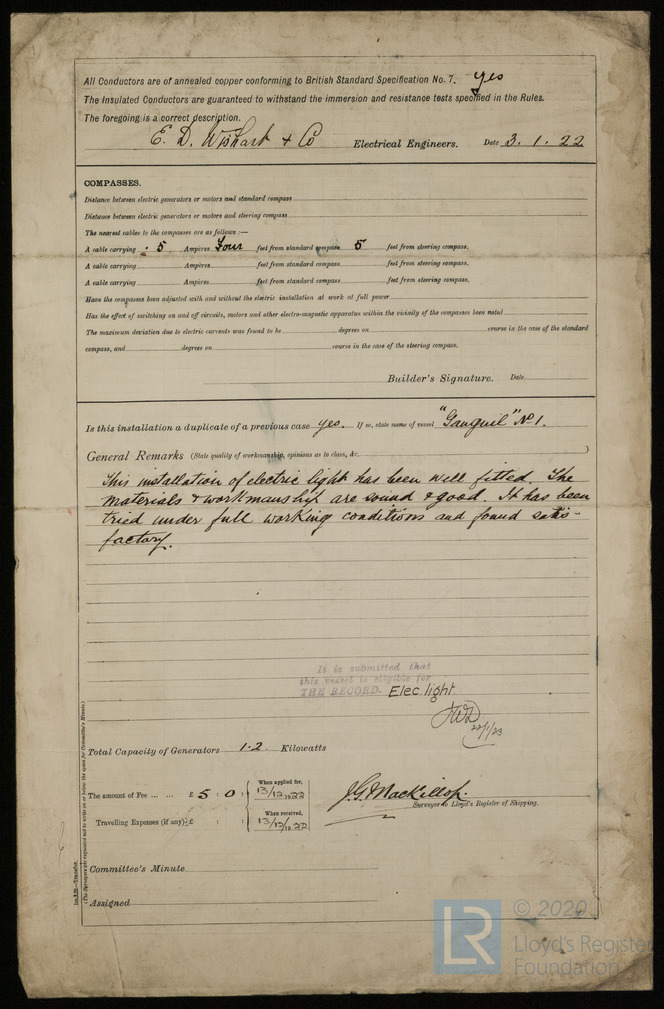 All Conductors are of annealed copper conforming to British Standard Specification No. 7. yes
The Insulated Conductors are guaranteed to withstand the immersion and resistance tests specified in the Rules.
The foregoing is a correct description.
E. D. Wishart & Co Electrical Engineers. Date 3. 1. 22
COMPASSES.
Distance between electric generators or motors and standard compass
Distance between electric generators or motors and steering compass
The nearest cables to the compasses are as follows:—
A cable carrying .5 Ampères Four feet from standard compass 5 feet from steering compass.
A cable carrying Ampères feet from standard compass feet from steering compass.
A cable carrying Ampères feet from standard compass feet from steering compass.
Have the compasses been adjusted with and without the electric installation at work at full power
Has the effect of switching on and off circuits, motors and other electro-magnetic apparatus within the vicinity of the compasses been noted
The maximum deviation due to electric currents was found to be degrees on course in the case of the standard
compass, and degrees on course in the case of the steering compass.
Builder's Signature. Date
Is this installation a duplicate of a previous case yes. If so, state name of vessel No. 1.
General Remarks (State quality of workmanship, opinions as to class, &c. )
This installation of electric light has been well fitted. The
materials & workmanship are sound & good. It has been
tried under full working conditions and found satis-
factory.
It is submitted that
this vessel is eligible for
THE RECORD. Elec. light
22/1/23
Total Capacity of Generators 1.2 Kilowatts
The amount of Fee ... ... £ 5 : 0 :
When applied for,
13/12/1922
Travelling Expenses (if any) £ : :
When received,
13/12/1922
J.G. Mackillop.
Surveyor to Lloyd's Register of Shipping.
Committee's Minute
Assigned
(The Surveyors are requested not to write on or below the space for Committee's Minute.)
© 2020
LR
Lloyd's Register
Foundation